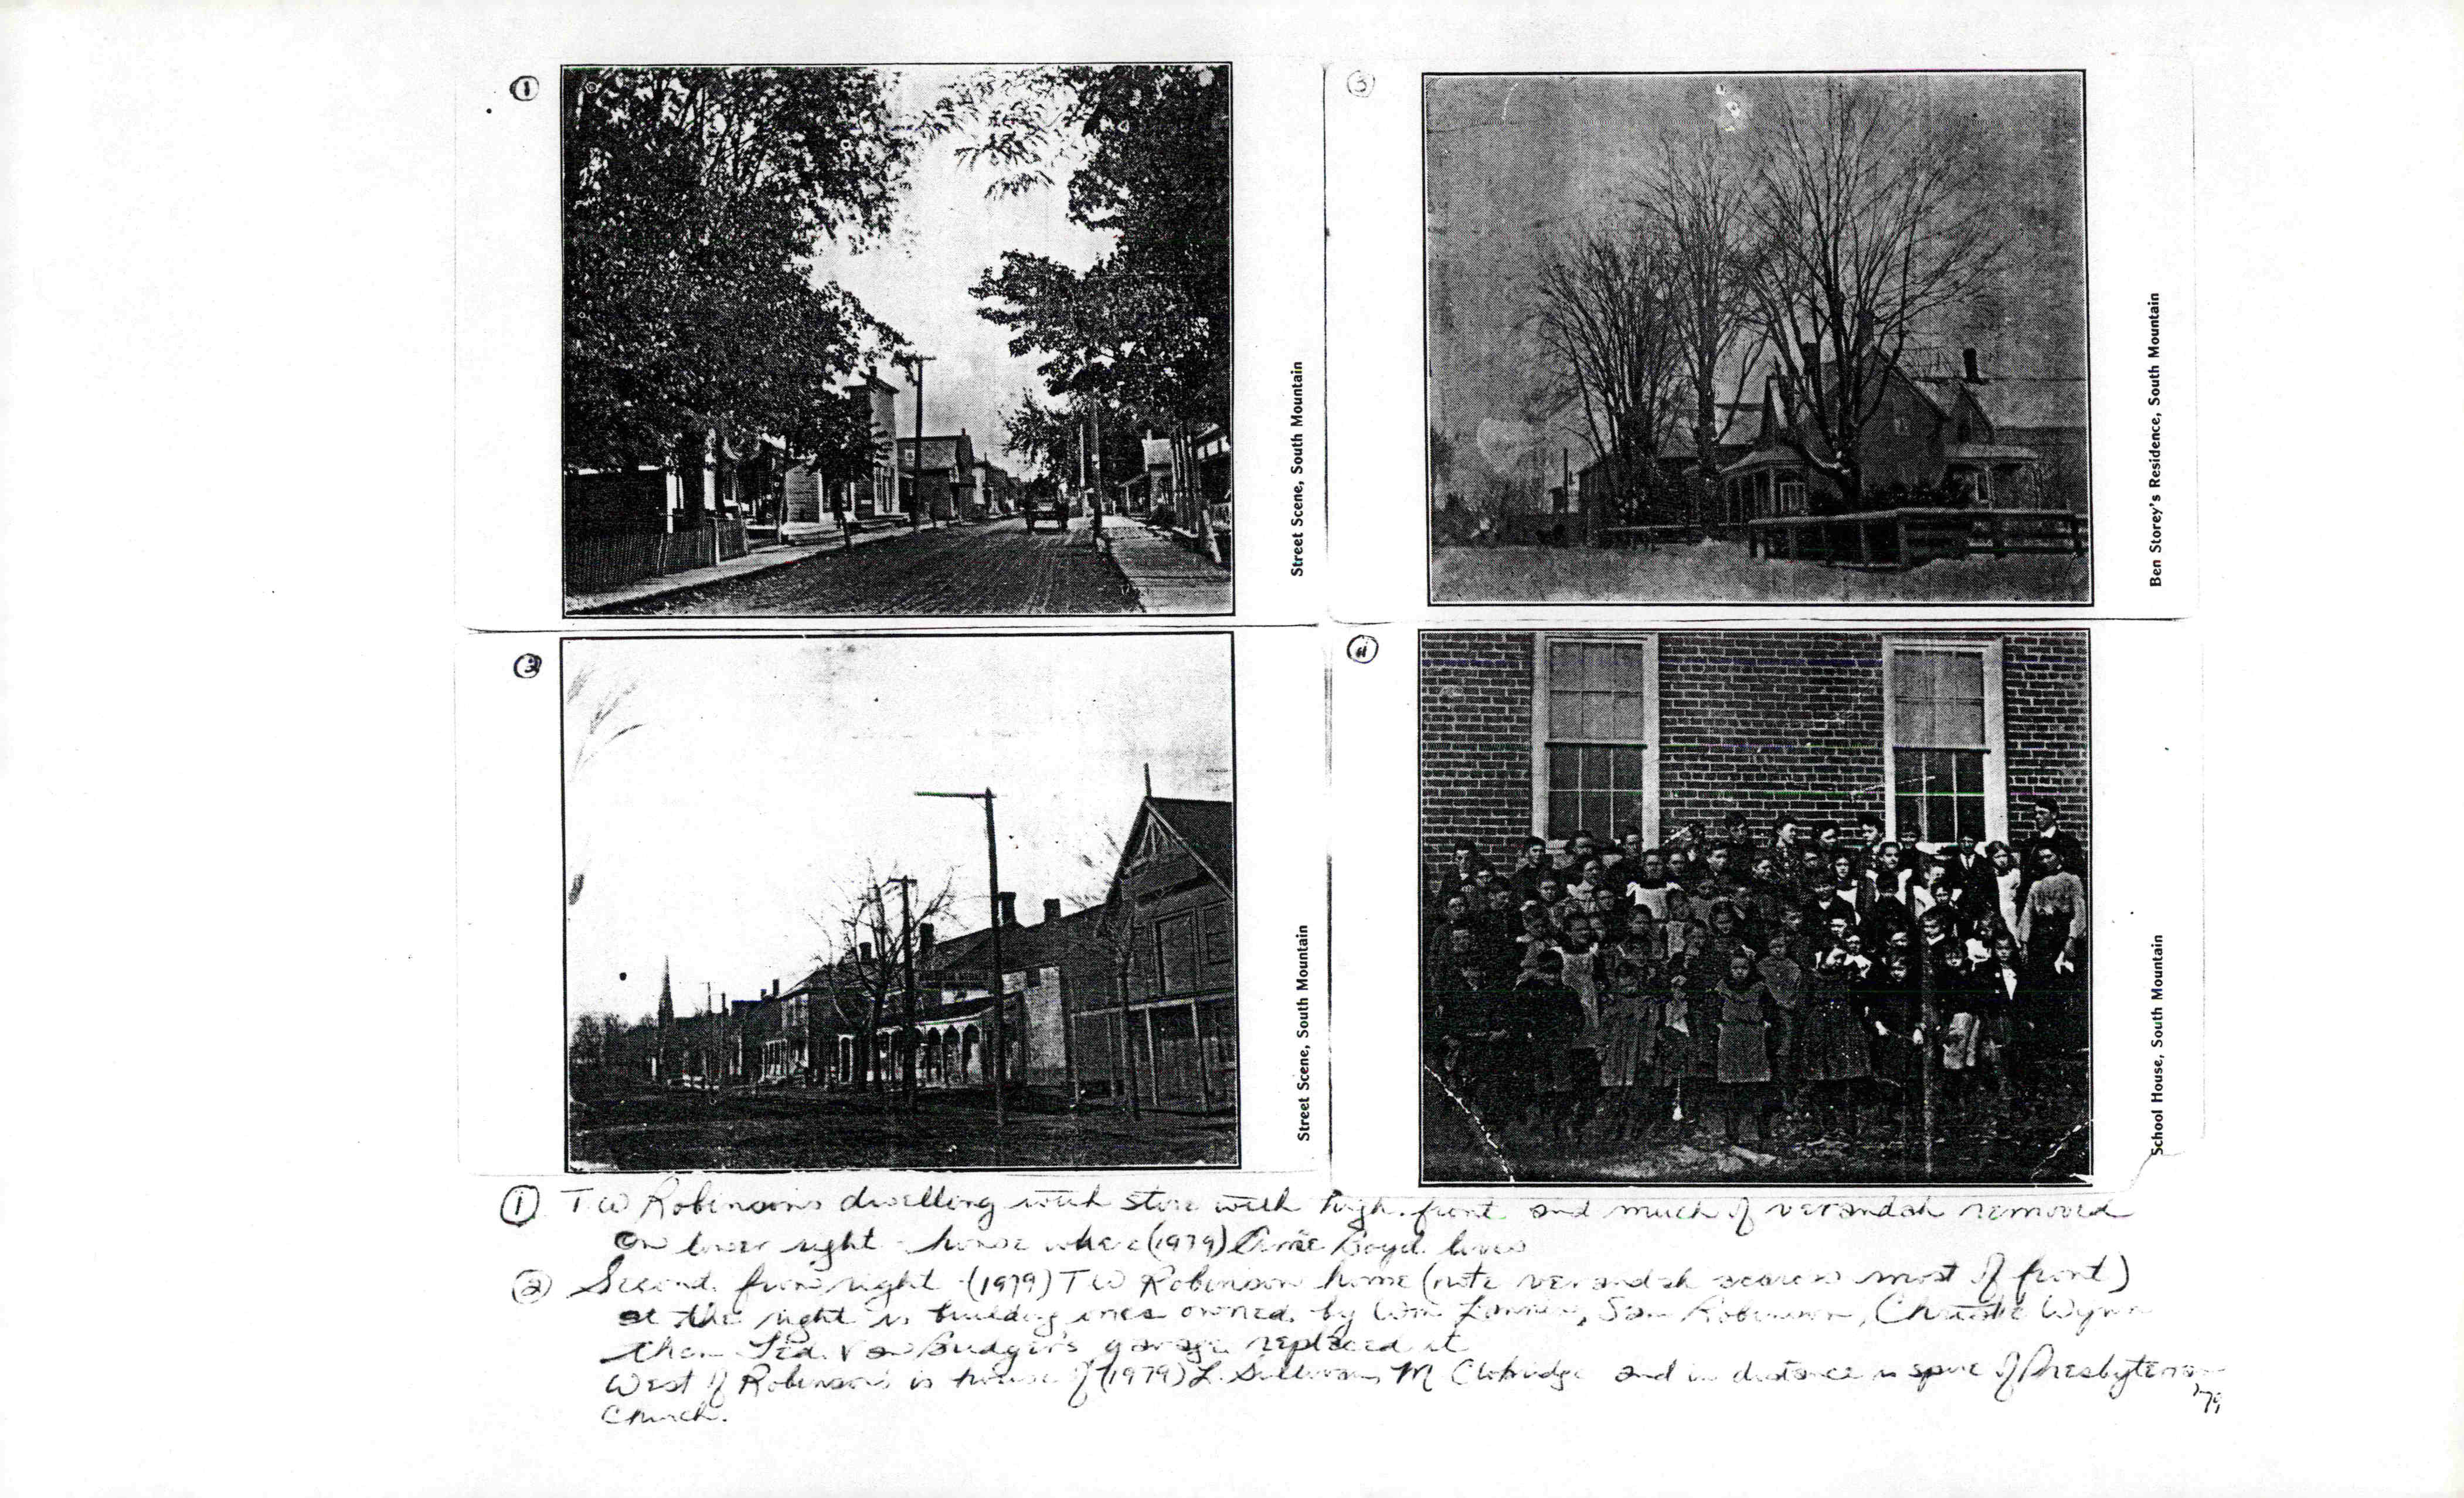 ①
Street Scene, South Mountain
③
Ben Storey's Residence, South Mountain
②
Street Scene, South Mountain
④
School House, South Mountain
① T W Robinson's dwelling with store with high front and much of verandah removed
On lower right - house where (1979) Boyd lives
② Second from right - (1979) T W Robinson home (note verandah across most of front)
at the right is building once owned by Wm , Sam Robinson, Christie Wynn
then garage replaced it
West of Robinson's is house of (1979) L. Sullivan, M and in distance is spire of Presbyterian
Church.
'79